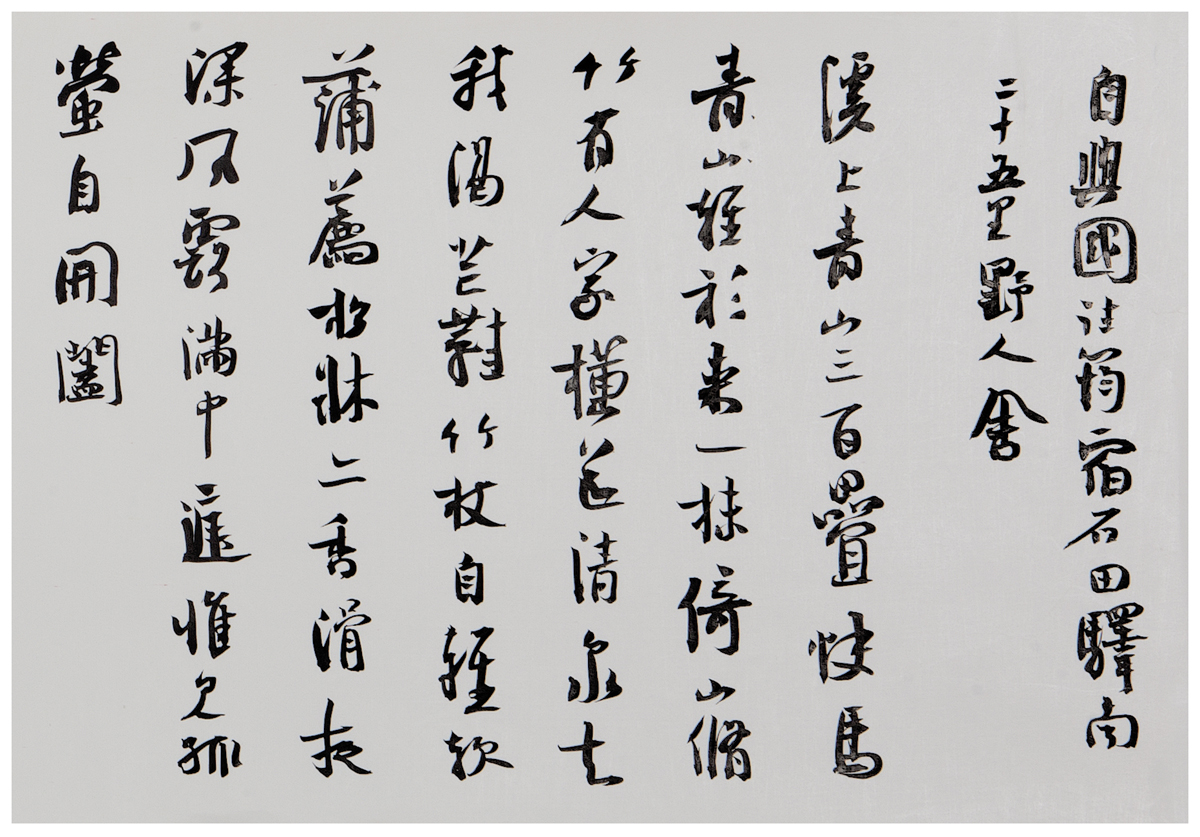 自興國往筠宿石田驛南
二十五里野人舍
溪上青山三百疊快馬
青山輕衫來一抹倚山脩
竹有人家橫道清泉知
我渴芒鞋竹杖自輕軟
蒲薦松牀亦香滑夜
深風露滿中庭惟見孤
螢自開闔